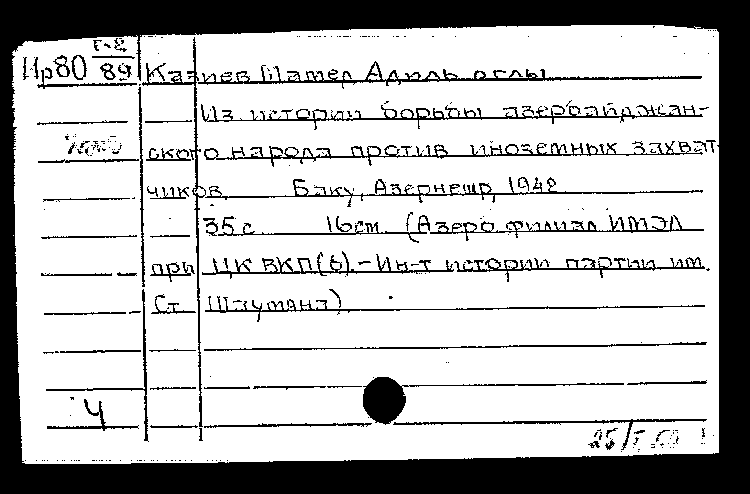 Г-2
Ир80 89 Казиев Мамед Адиль оглы
Из истории борьбы азербайджан-
ского народа против иноземных захват-
чиков. Баку, Азернешр, 1942
35 с. 16 см. (Азерб. филиал ИМЭЛ
при ЦК ВКП(б).-Ин-т истории партии им.
Ст. Шаумяна).
Ч